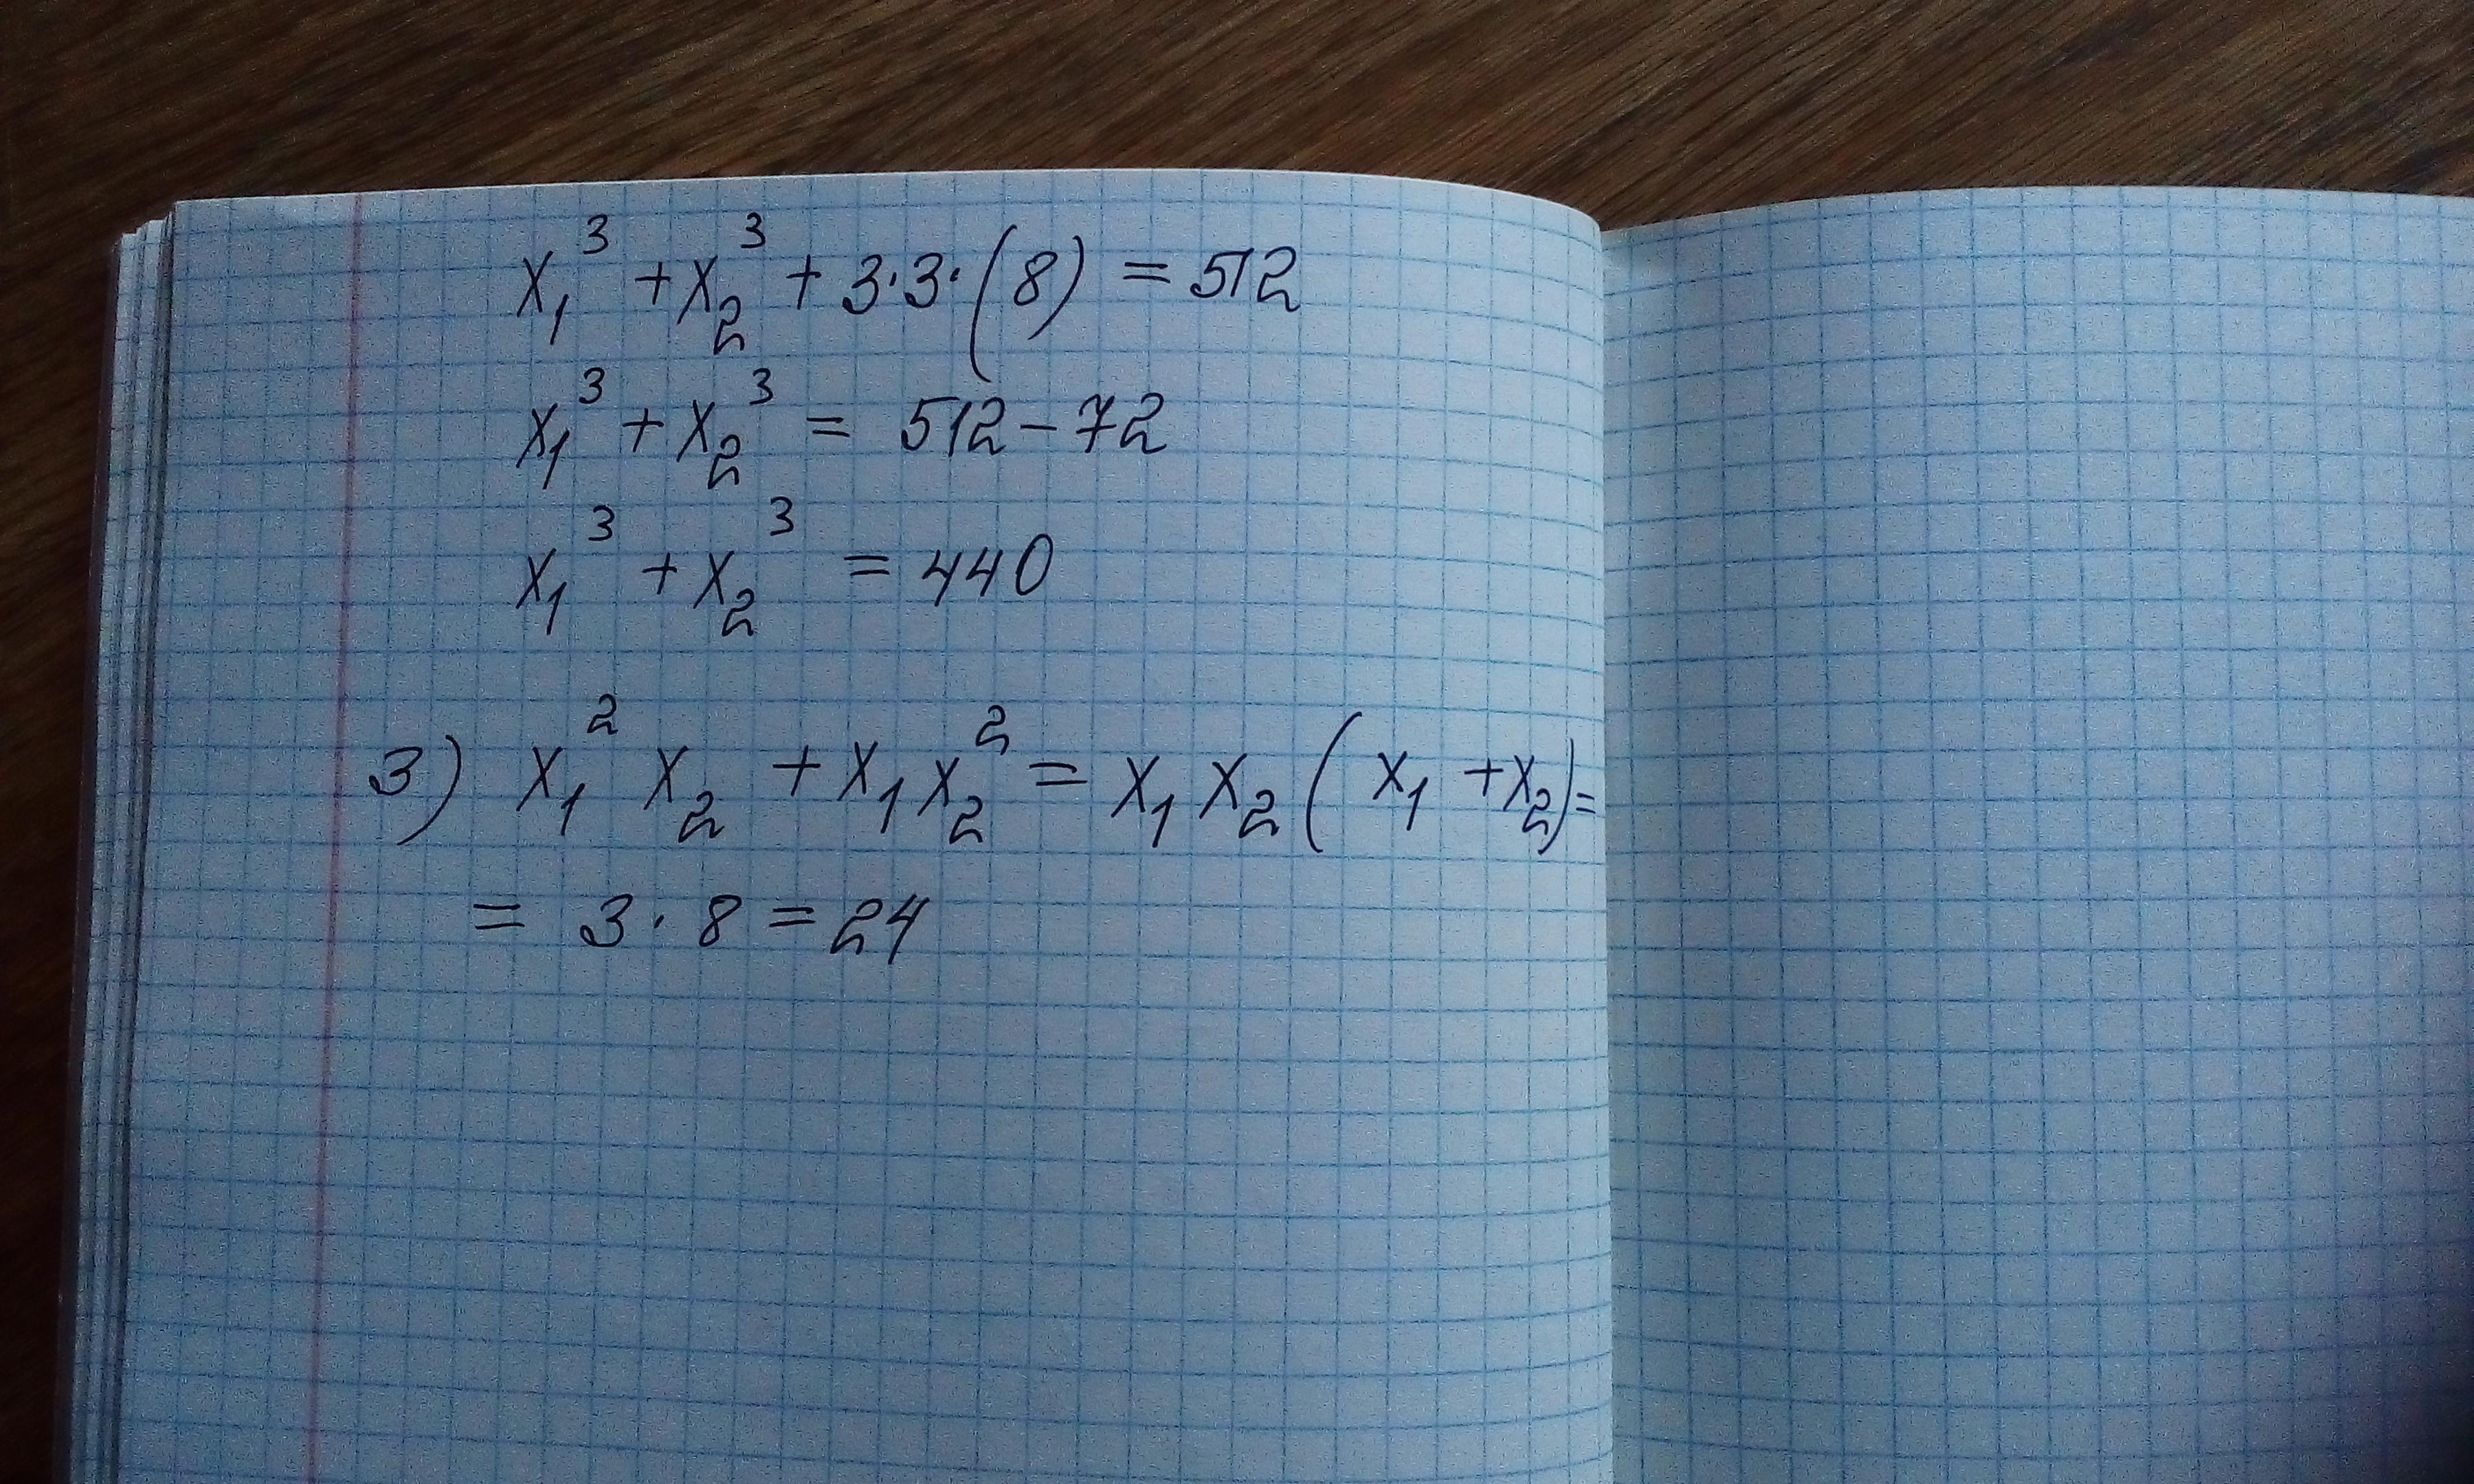 x₁³ + x₂³ + 3·3·(8) = 512
x₁³ + x₂³ = 512 - 72
x₁³ + x₂³ = 440
3) x₁² x₂ + x₁ x₂² = x₁ x₂ ( x₁ + x₂) =
= 3 · 8 = 24